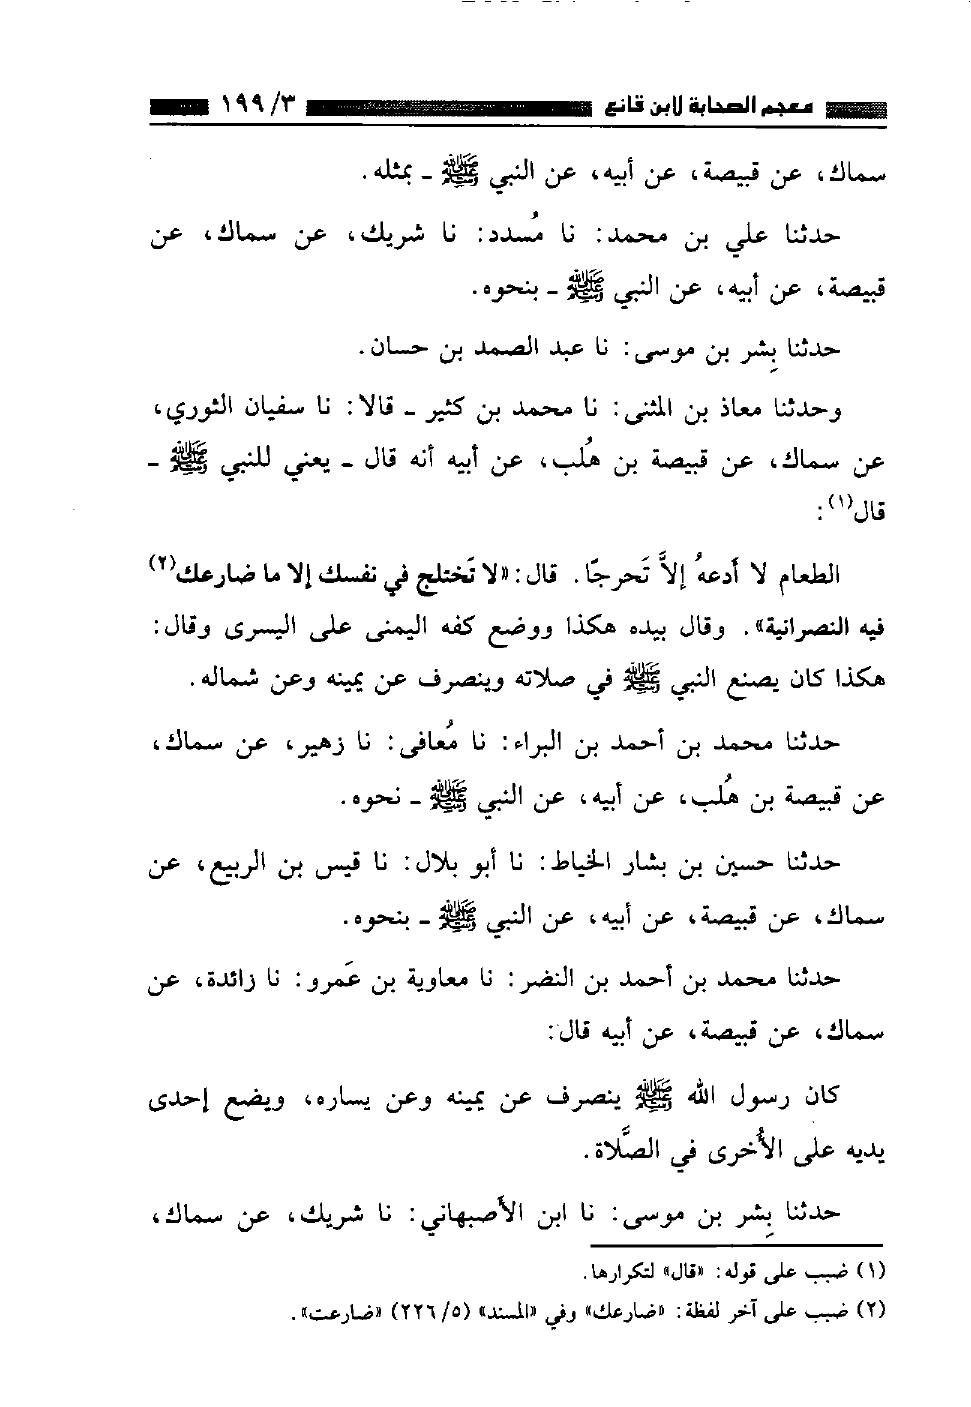 معجم الصحابة لابن قانع ٣/ ١٩٩
سماك، عن قبيصة، عن أبيه، عن النبي ﷺ ـ بمثله.
حدثنا علي بن محمد: نا مُسدد: نا شريك، عن سماك، عن
قبيصة، عن أبيه، عن النبي ﷺ ـ بنحوه.
حدثنا بِشر بن موسى: نا عبد الصمد بن حسان.
وحدثنا معاذ بن المثنى: نا محمد بن كثير ـ قالا: نا سفيان الثوري،
عن سماك، عن قبيصة بن هُلب، عن أبيه أنه قال ـ يعني للنبي ﷺ ـ
قال(١):
الطعام لا أَدعهُ إلاَّ تَحرجًا. قال: «لا تَختلج في نفسك إلا ما ضارعك(٢)
فيه النصرانية». وقال بيده هكذا ووضع كفه اليمنى على اليسرى وقال:
هكذا كان يصنع النبي ﷺ في صلاته وينصرف عن يمينه وعن شماله.
حدثنا محمد بن أحمد بن البراء: نا مُعافى: نا زهير، عن سماك،
عن قبيصة بن هُلب، عن أبيه، عن النبي ﷺ ـ نحوه.
حدثنا حسين بن بشار الخياط: نا أبو بلال: نا قيس بن الربيع، عن
سماك، عن قبيصة، عن أبيه، عن النبي ﷺ ـ بنحوه.
حدثنا محمد بن أحمد بن النضر: نا معاوية بن عَمرو: نا زائدة، عن
سماك، عن قبيصة، عن أبيه قال:
كان رسول الله ﷺ ينصرف عن يمينه وعن يساره، ويضع إحدى
يديه على الأُخرى في الصَّلاة.
حدثنا بِشر بن موسى: نا ابن الأصبهاني: نا شريك، عن سماك،
(١) ضبب على قوله: «قال» لتكرارها.
(٢) ضبب على آخر لفظة: «ضارعك» وفي «المسند» (٥/ ٢٢٦) «ضارعت».